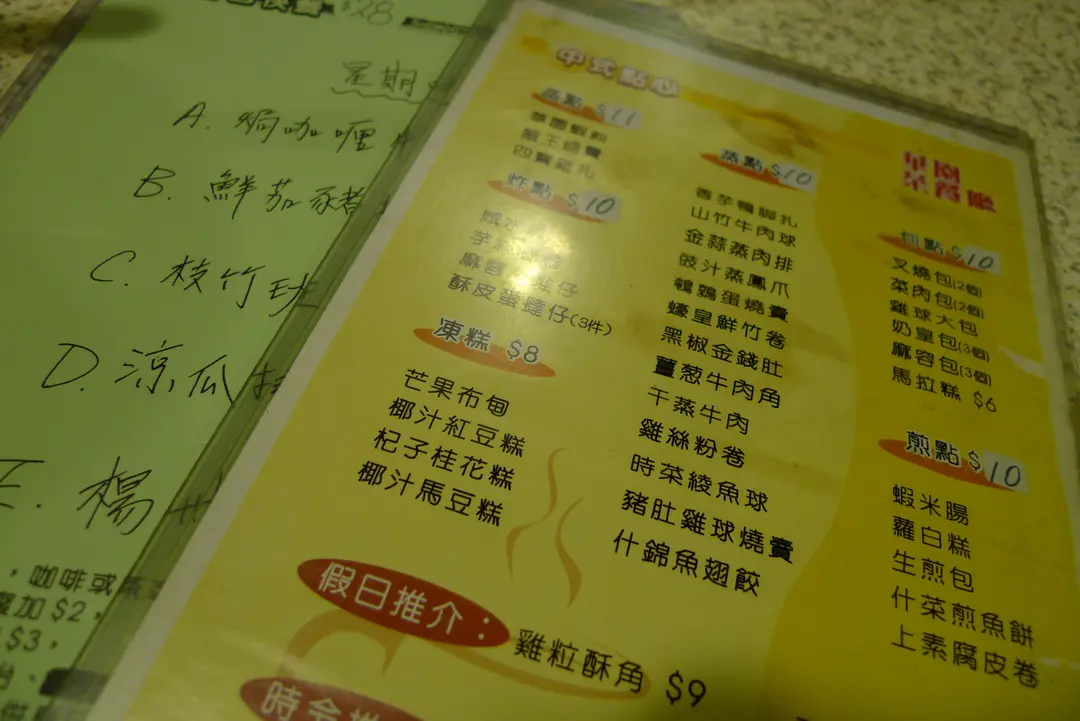 $28
星期
A. 焗咖喱牛
B. 鮮茄豬
C. 枝竹班
D. 涼瓜
E. 楊州
咖啡或茶
加 $2，
$3，
中式點心
蒸點 $11
華園蝦餃
蟹王燒賣
四寶雞丸
炸點 $10
咸水
芋
麻蓉
酥皮蛋撻仔(3件)
凍糕 $8
芒果布甸
椰汁紅豆糕
杞子桂花糕
椰汁馬豆糕
蒸點 $10
香芋鴨腳扎
山竹牛肉球
金蒜蒸肉排
豉汁蒸鳳爪
鵪鶉蛋燒賣
蠔皇鮮竹卷
黑椒金錢肚
薑葱牛肉角
干蒸牛肉
雞絲粉卷
時菜綾魚球
豬肚雞球燒賣
什錦魚翅餃
華園
餐廳
包點 $10
叉燒包(2個)
菜肉包(2個)
雞球大包
奶皇包(3個)
麻容包(3個)
馬拉糕 $6
煎點 $10
蝦米腸
蘿白糕
生煎包
什菜煎魚餅
上素腐皮卷
假日推介：雞粒酥角 $9
時令推